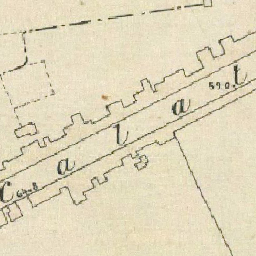 Calat
590.